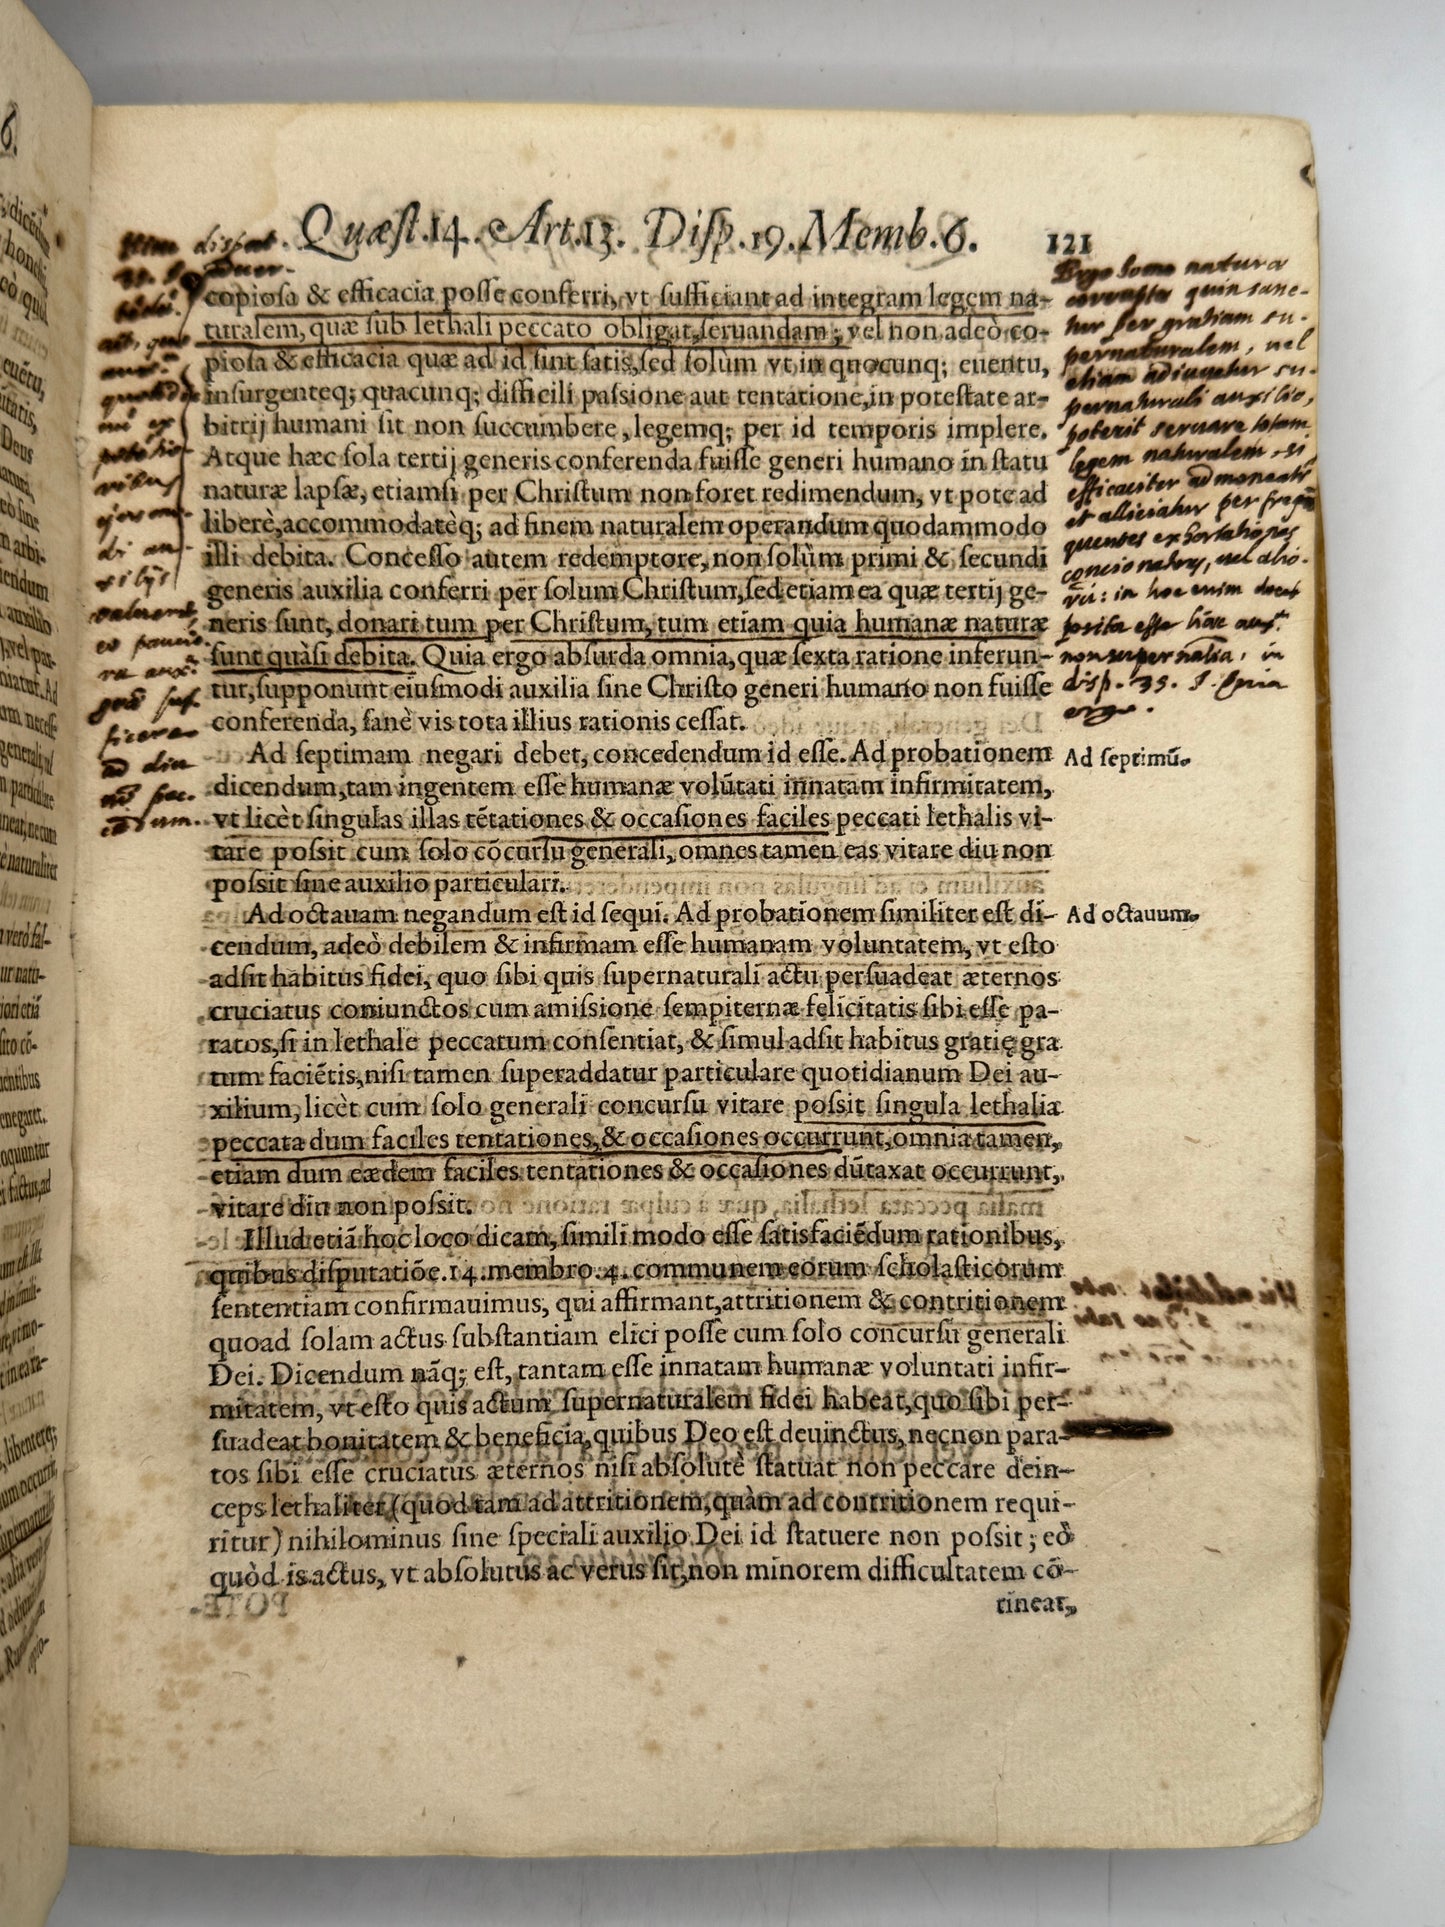 Quæst.14. Art.13. Disp.19. Memb.6. 121
copiosa & efficacia posse conferri, vt sufficiant ad integram legem na-
turalem, quæ sub lethali peccato obligat, seruandam; vel non adeò co-
piosa & efficacia quæ ad id sint satis, sed solùm vt in quocunq; euentu,
insurgenteq; quacunq; difficili passione aut tentatione, in potestate ar-
bitrij humani sit non succumbere, legemq; per id temporis implere.
Atque hæc sola tertij generis conferenda fuisse generi humano in statu
naturæ lapsæ, etiamsi per Christum non foret redimendum, vt pote ad
liberè, accommodatèq; ad finem naturalem operandum quodammodo
illi debita. Concesso autem redemptore, non solùm primi & secundi
generis auxilia conferri per solum Christum, sed etiam ea quæ tertij ge-
neris sunt, donari tum per Christum, tum etiam quia humanæ naturæ
sunt quàsi debita. Quia ergo absurda omnia, quæ sexta ratione inferun-
tur, supponunt eiusmodi auxilia sine Christo generi humano non fuisse
conferenda, sanè vis tota illius rationis cessat.
Ad septimam negari debet, concedendum id esse. Ad probationem
dicendum, tam ingentem esse humanæ volũtati innatam infirmitatem,
vt licèt singulas illas tẽtationes & occasiones faciles peccati lethalis vi-
tare possit cum solo cõcursu generali, omnes tamen eas vitare diu non
possit sine auxilio particulari.
Ad octauam negandum est id sequi. Ad probationem similiter est di-
cendum, adeò debilem & infirmam esse humanam voluntatem, vt esto
adsit habitus fidei, quo sibi quis supernaturali actu persuadeat æternos
cruciatus coniunctos cum amissione sempiternæ felicitatis sibi esse pa-
ratos, si in lethale peccatum consentiat, & simul adsit habitus gratię gra
tum faciẽtis, nisi tamen superaddatur particulare quotidianum Dei au-
xilium, licèt cum solo generali concursu vitare possit singula lethalia
peccata dum faciles tentationes, & occasiones occurrunt, omnia tamen,
etiam dum eædem faciles tentationes & occasiones dũtaxat occurrunt,
vitare diu non possit.
Illud etiã hoc loco dicam, simili modo esse satisfaciẽdum rationibus,
quibus disputatiõe.14.membro.4. communem eorum scholasticorum
sententiam confirmauimus, qui affirmant, attritionem & contritionem
quoad solam actus substantiam elici posse cum solo concursu generali
Dei. Dicendum nãq; est, tantam esse innatam humanæ voluntati infir-
mitatem, vt esto quis actum supernaturalem fidei habeat, quo sibi per-
suadeat bonitatem & beneficia, quibus Deo est deuinctus, necnon para-
tos sibi esse cruciatus æternos nisi absolutè statuat non peccare dein-
ceps lethaliter, (quod tam ad attritionem, quàm ad contritionem requi-
ritur) nihilominus sine speciali auxilio Dei id statuere non possit; eò
quòd is actus, vt absolutus ac verus sit, non minorem difficultatem cõ-
tineat,
Ergo homo natura
corrupta quin sane-
tur per gratiam su-
pernaturalem, vel
etiam adiuvetur su-
pernaturali auxilio,
poterit servare totam
legem naturalem, si
efficaciter admoneatr
et alliciatur per freq
quentes exhortationes
concionatorũ, vel alio-
rũ: in hoc enim
posita esse
non supernãlia, in
disp. 35. §. Quia
ergo.
Ad septimũ.
Ad octauum.